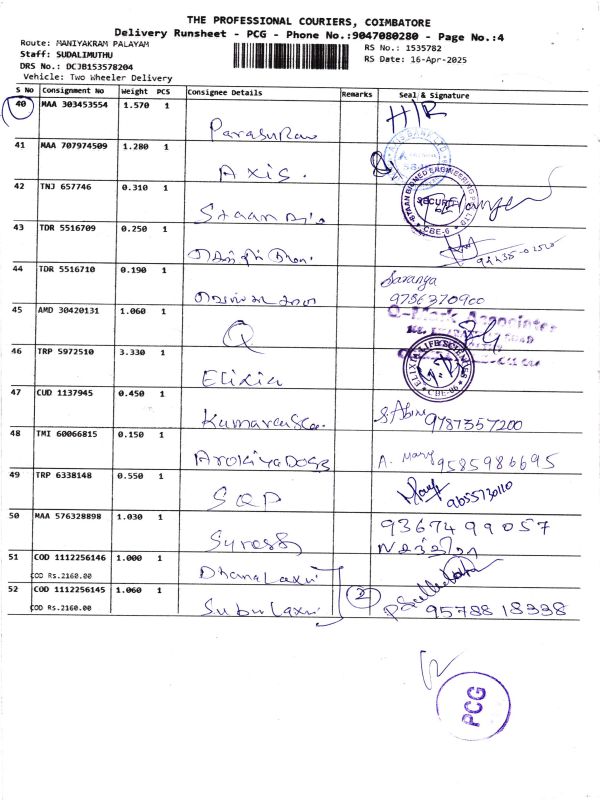 THE PROFESSIONAL COURIERS, COIMBATORE
Delivery Runsheet - PCG - Phone No.:9047080280 - Page No.:4
Route: MANIYAKRAM PALAYAM
RS No.: 1535782
Staff: SUDALIMUTHU
RS Date: 16-Apr-2025
DRS No.: DCJB153578204
Vehicle: Two Wheeler Delivery
S No Consignment No Weight PCS Consignee Details Remarks Seal & Signature
40 MAA 303453554 1.570 1 H/R
Parasuram
41 MAA 707974509 1.280 1
Axis.
42 TNJ 657746 0.310 1
Staan SECURITY CBE-6
43 TDR 5516709 0.250 1
44 TDR 5516710 0.190 1 Saranya
9786370900
45 AMD 30420131 1.060 1 Q-Mark Associates
Q
46 TRP 5972510 3.330 1 ELIXIR LIFE SCIENCES
Elixir
47 CUD 1137945 0.450 1
9787357200
48 TMI 60066815 0.150 1 A. Mary 9585986695
49 TRP 6338148 0.550 1
SQP 9655730110
50 MAA 576328898 1.030 1 9367499057
Suress
51 COD 1112256146 1.000 1
COD Rs.2160.00 Dhanalaxmi
52 COD 1112256145 1.060 1 2
COD Rs.2160.00 Subulaxmi 9578818338
PCG